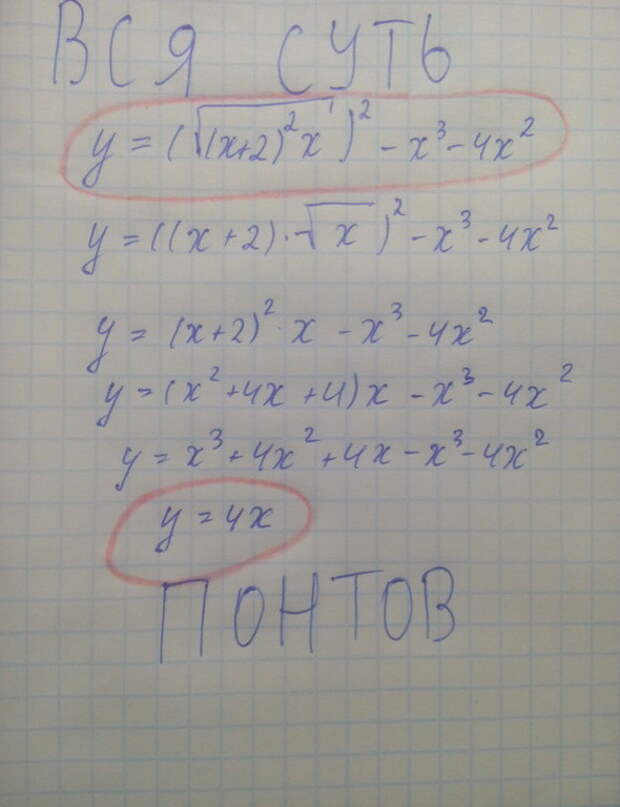 ВСЯ СУТЬ
y = (√((x+2)²x))² - x³ - 4x²
y = ((x+2)·√x)² - x³ - 4x²
y = (x+2)²·x - x³ - 4x²
y = (x²+4x+4)x - x³ - 4x²
y = x³+4x²+4x - x³ - 4x²
y = 4x
ПОНТОВ